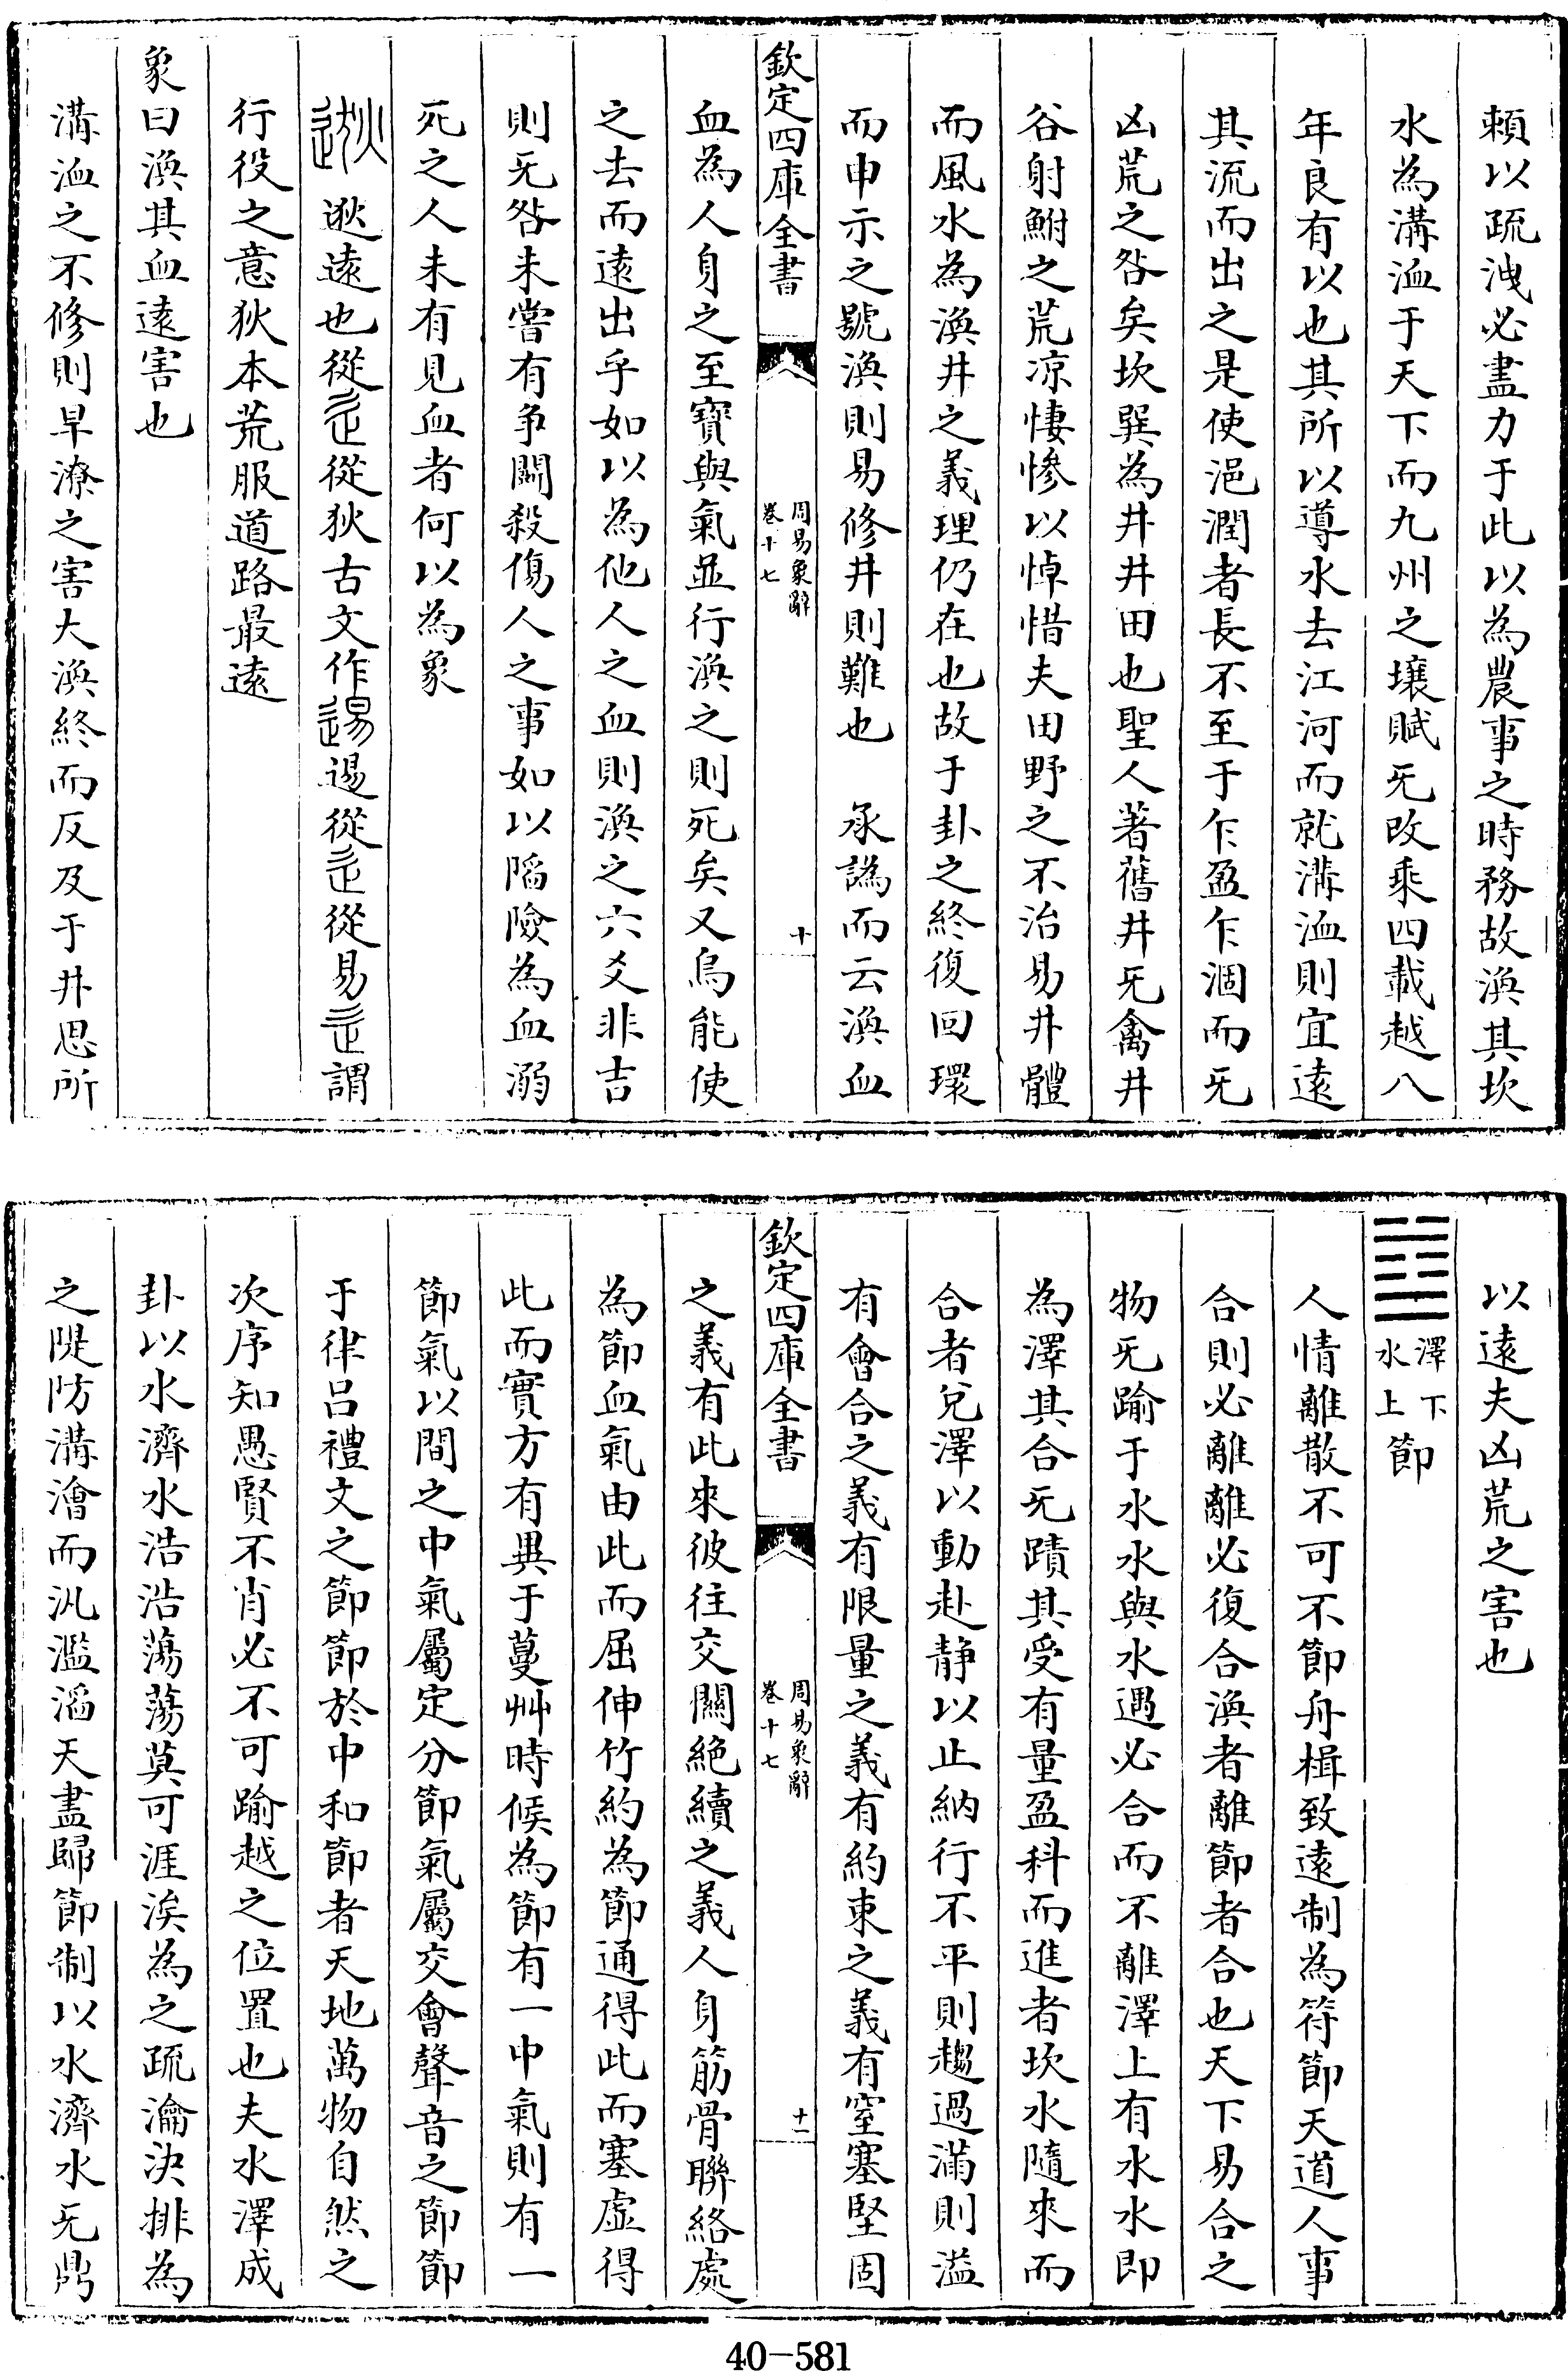 頼以疏洩必盡力于此以為農事之時務故渙其坎
水為溝洫于天下而九州之壤賦旡改乘四載越八
年良有以也其所以導水去江河而就溝洫則宜遠
其流而出之是使浥潤者長不至于乍盈乍涸而旡
凶荒之咎矣坎巽為井井田也聖人著舊井旡禽井
谷射鮒之荒凉悽慘以悼惜夫田野之不治易井體
而風水為渙井之義理仍在也故于卦之終復回環
而申示之號渙則易修井則難也　承譌而云渙血
欽定四庫全書
周易象辭
卷十七
十
血為人身之至寶與氣並行渙之則死矣又烏能使
之去而遠出乎如以為他人之血則渙之六爻非吉
則旡咎未嘗有爭鬬殺傷人之事如以陷險為血溺
死之人未有見血者何以為象
逖遠也從辵從狄古文作逷逷從辵從易辵謂
行役之意狄本荒服道路最遠
象曰渙其血遠害也
溝洫之不修則旱潦之害大渙終而反及于井思所
以遠夫凶荒之害也
澤下
水上
節
人情離散不可不節舟楫致遠制為符節天道人事
合則必離離必復合渙者離節者合也天下易合之
物旡踰于水水與水遇必合而不離澤上有水水即
為澤其合旡蹟其受有量盈科而進者坎水隨來而
合者兌澤以動赴静以止納行不平則趨過滿則溢
有會合之義有限量之義有約束之義有窒塞堅固
欽定四庫全書
周易象辭
卷十七
十一
之義有此來彼往交關絕續之義人身筋骨聯絡處
為節血氣由此而屈伸竹約為節通得此而塞虛得
此而實方有異于蔓艸時候為節有一中氣則有一
節氣以間之中氣屬定分節氣屬交會聲音之節節
于律呂禮文之節節於中和節者天地萬物自然之
次序知愚賢不肖必不可踰越之位置也夫水澤成
卦以水濟水浩浩蕩蕩莫可涯涘為之疏瀹決排為
之隄防溝澮而汎濫滔天盡歸節制以水濟水旡鼎
40-581